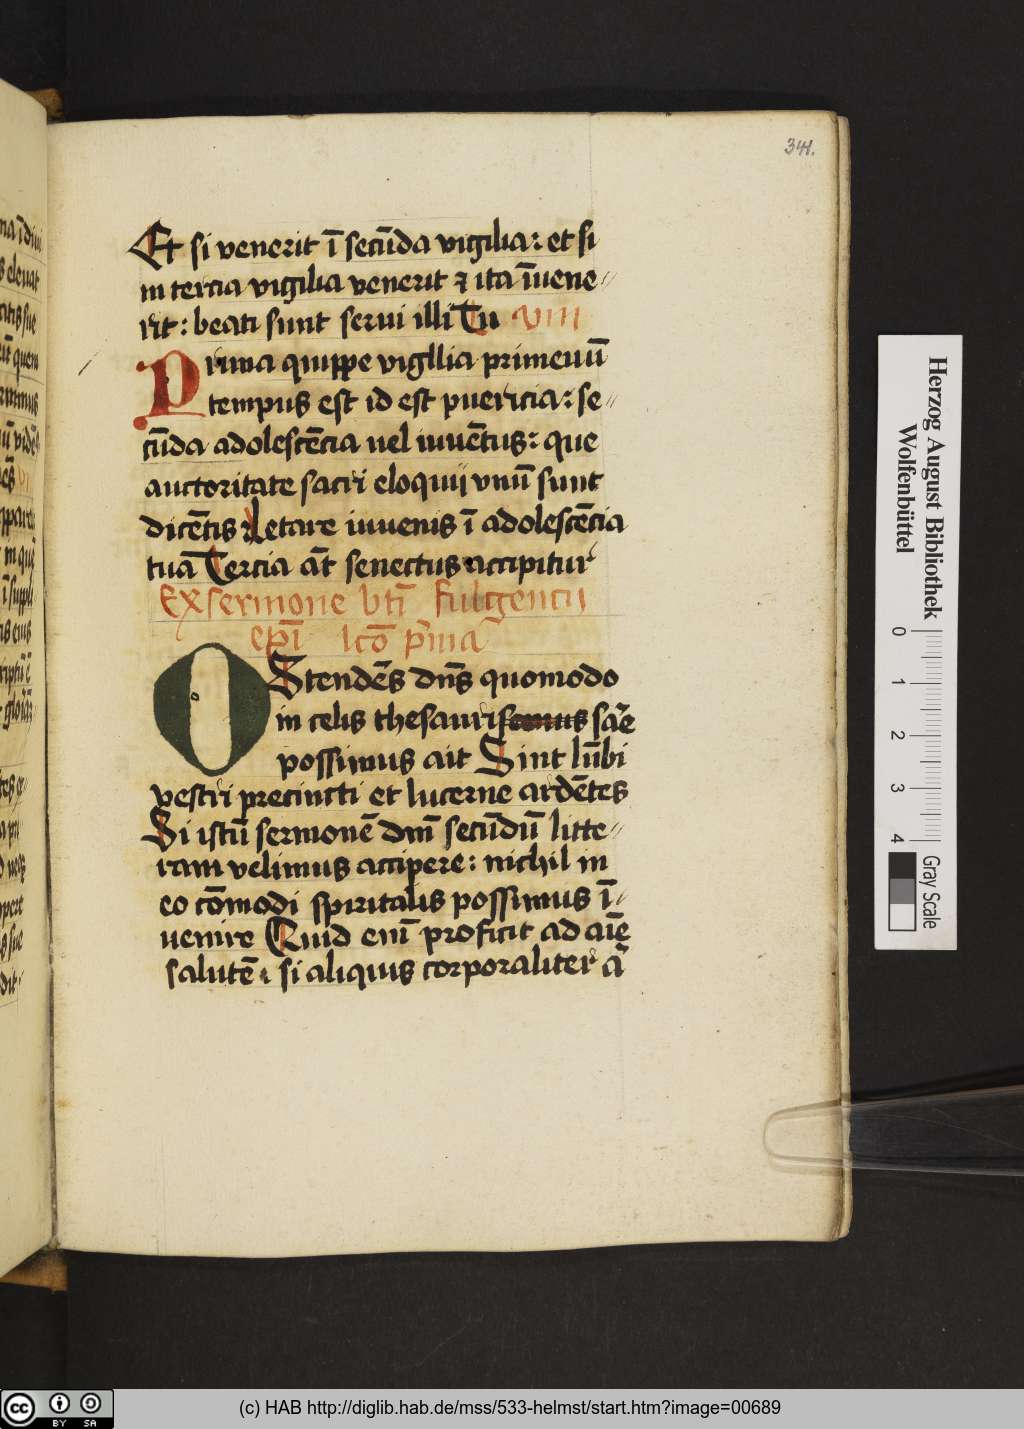 341.
Et si venerit ī secūda vigilia: et si
in tercia vigilia venerit ⁊ ita īuene⸗
rit: beati sunt serui illi Tu VIII
Prima quippe vigllia primeuū
tempus est id est puericia: se⸗
cūda adolescēcia uel iuuētus: que
auctoritate sacri eloquij vnū sunt
dicētis: Letare iuuenis ī adolescēcia
tuā Tercia āt senectus accipitur
Ex sermone bti Fulgencii
epī lcō p̄ma
OStendēs dn̄s quomodo
in celis thesaurisemus sāe
possimus ait Sint lūbi
vestri precincti et lucerne ardētes
Si istū sermonē dnī secūdū litte⸗
ram velimus accipere: nichil in
eo cōmodi spiritalis possimus ī⸗
uenire Quid enī proficit ad aīe
salutē: si aliquis corporaliter ā
Herzog August Bibliothek
Wolfenbüttel
0 1 2 3 4
Gray Scale
cc BY SA
(c) HAB http://diglib.hab.de/mss/533-helmst/start.htm?image=00689